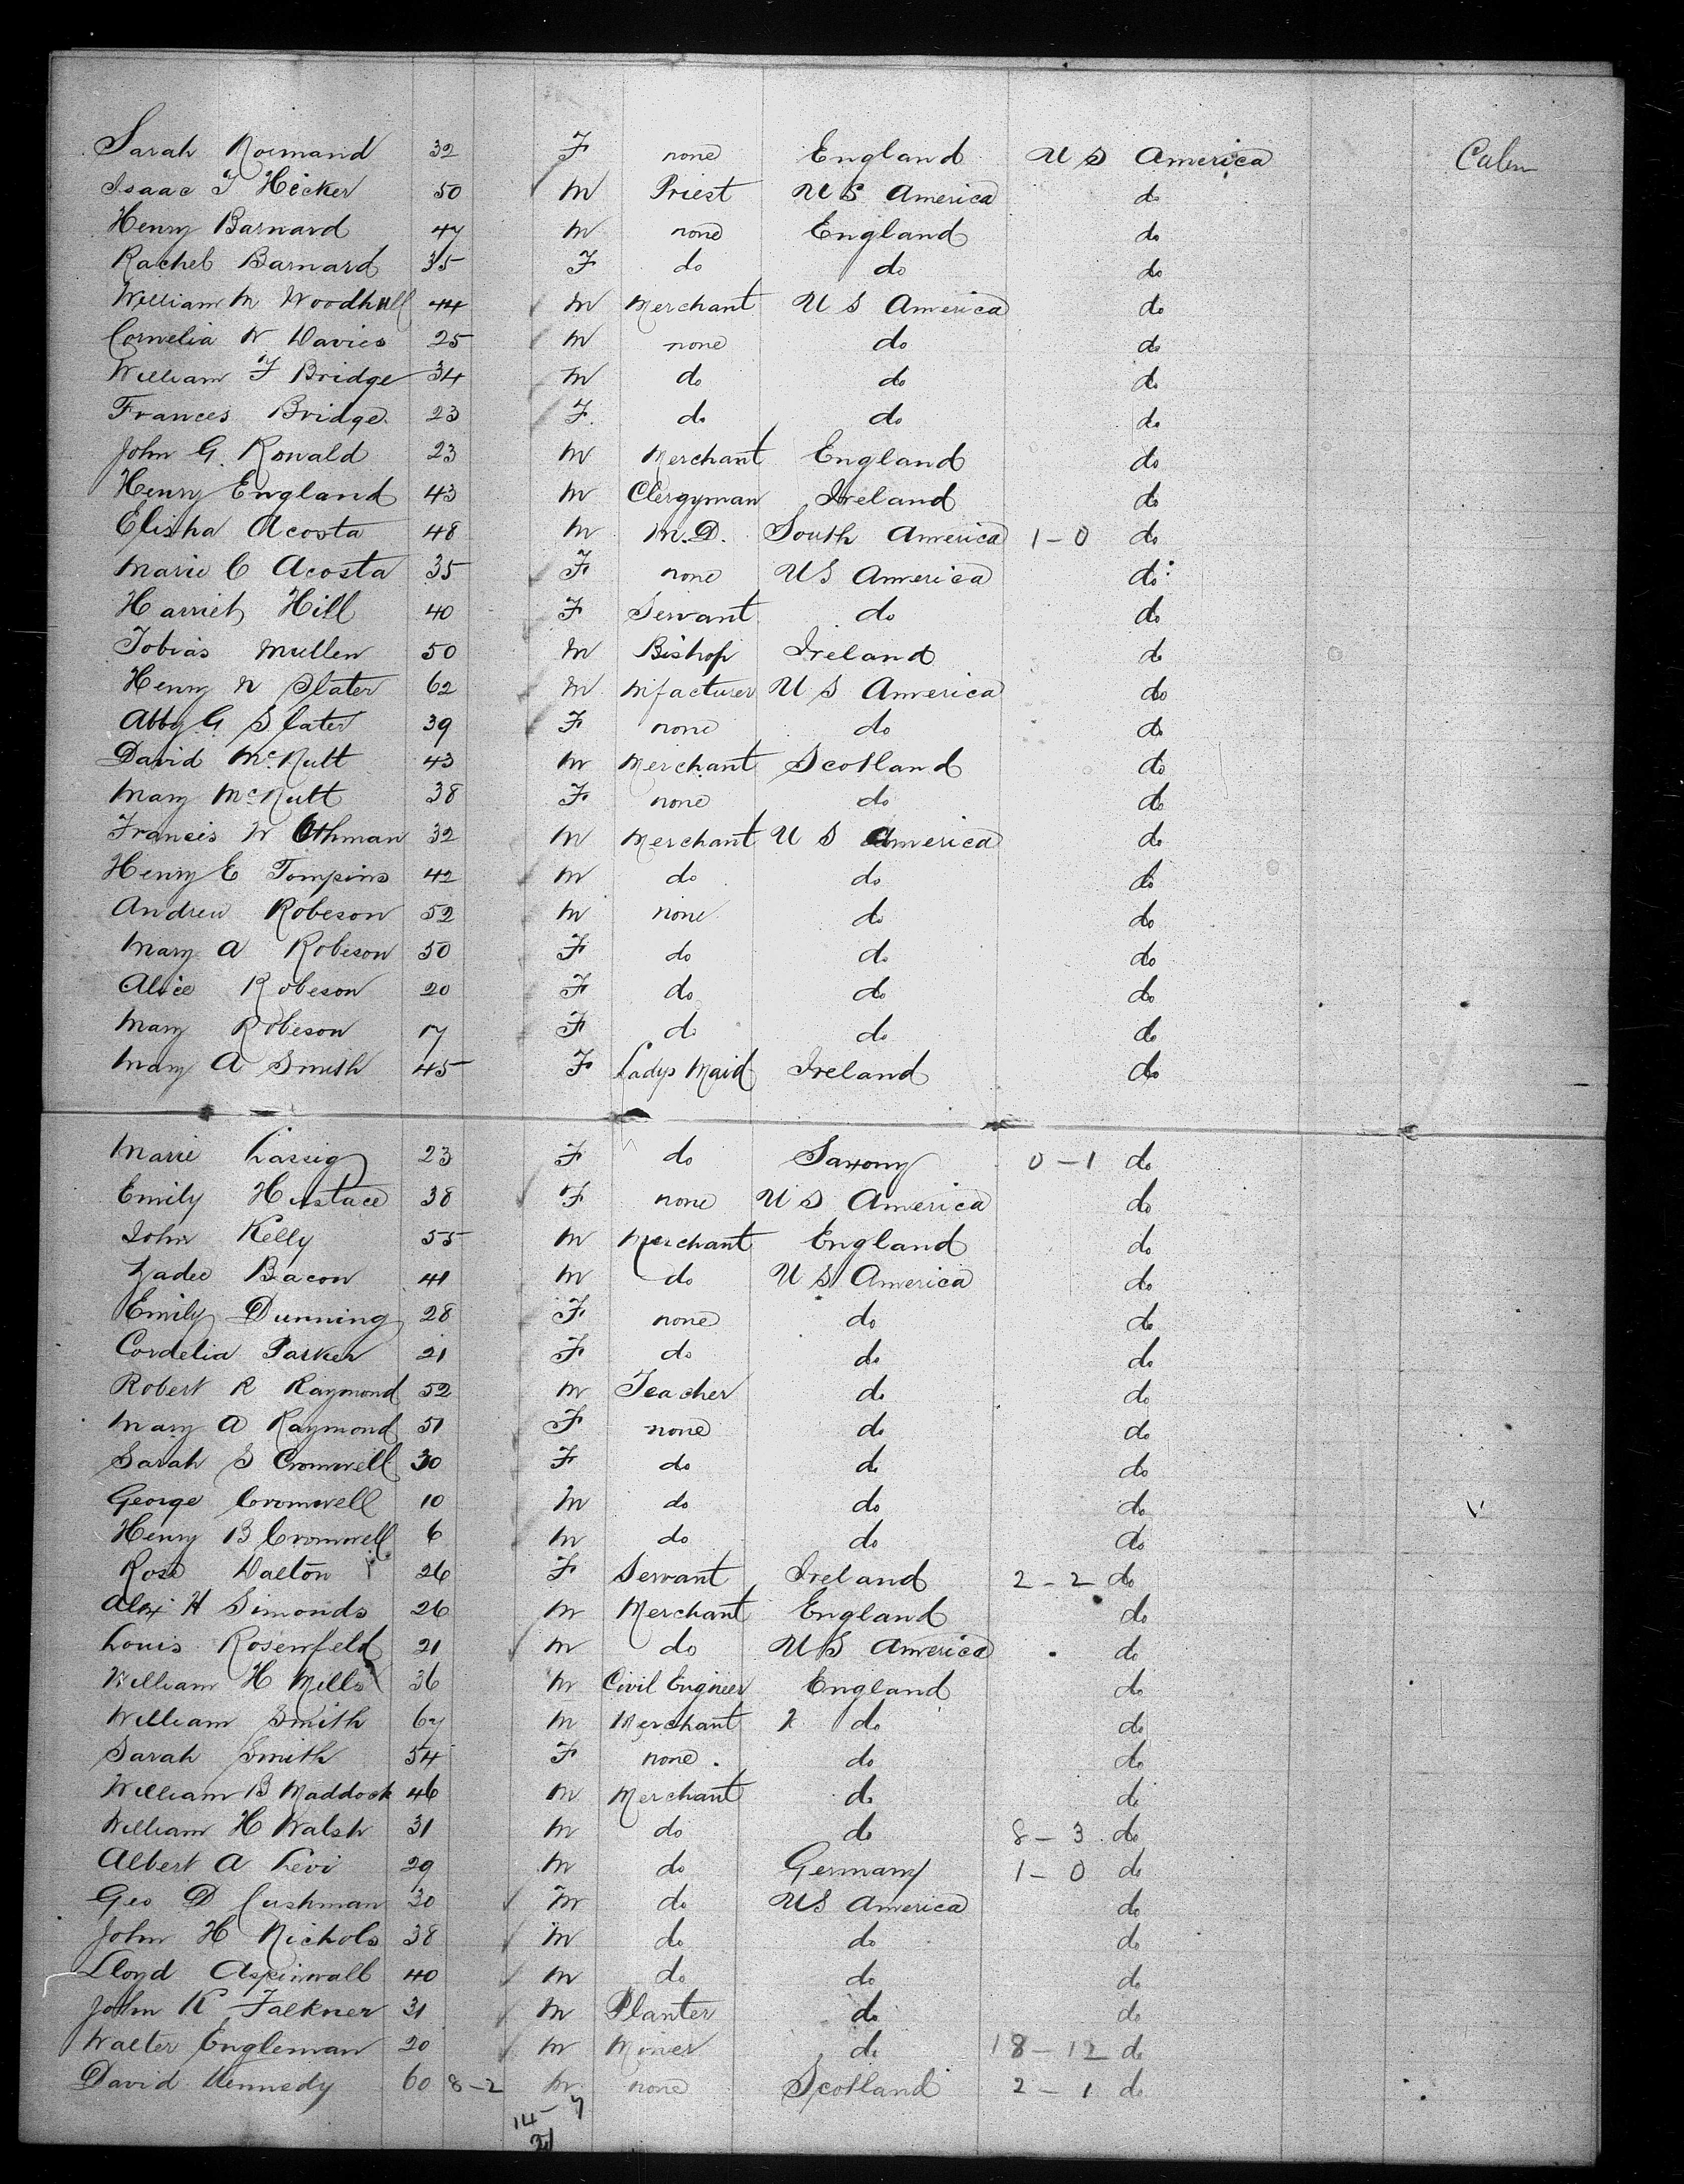 Sarah Normand 32 F none England U S America Cabin
Isaac T Hecker 50 M Priest U S America do
Henry Barnard 47 M none England do
Rachel Barnard 35 F do do do
William M Woodhull 44 M Merchant U S America do
Cornelia W Davies 25 M none do do
William F Bridge 34 M do do do
Frances Bridge 23 F do do do
John G. Ronald 23 M Merchant England do
Henry England 43 M Clergyman Ireland do
Elisha Acosta 48 M M.D. South America 1-0 do
Marie C Acosta 35 F none US America do
Harriet Hill 40 F Servant do do
Tobias Mullen 50 M Bishop Ireland do
Henry N Slater 62 M Mfacturer U S America do
Abby G Slater 39 F none do do
David McNutt 43 M Merchant Scotland do
Mary McNutt 38 F none do do
Francis W Othman 32 M Merchant U S America do
Henry E Tompins 42 M do do do
Andrew Robeson 52 M none do do
Mary A Robeson 50 F do do do
Alice Robeson 20 F do do do
Mary Robeson 17 F do do do
Mary A Smith 45 F Ladys Maid Ireland do
Marie Lassig 23 F do Saxony 0-1 do
Emily Hustace 38 F none U S America do
John Kelly 55 M Merchant England do
Bacon 41 M do U S America do
Emily Dunning 28 F none do do
Cordelia Parker 21 F do do do
Robert R Raymond 52 M Teacher do do
Mary A Raymond 51 F none do do
Sarah S Cromwell 30 F do do do
George Cromwell 10 M do do do
Henry B Cromwell 6 M do do do
Rose Dalton 26 F Servant Ireland 2-2 do
Alex H Simonds 26 M Merchant England do
Louis Rosenfeld 21 M do U S America do
William H Mills 36 M Civil Engineer England do
William Smith 67 M Merchant do do
Sarah Smith 54 F none do do
William B Maddock 46 M Merchant do do
William H Walsh 31 M do do 8-3 do
Albert A Levi 29 M do Germany 1-0 do
Geo D Cushman 30 M do US America do
John H Nichols 38 M do do do
Lloyd Aspinwall 40 M do do do
John K Falkner 31 M Planter do do
Walter Engleman 20 M Miner do 18-12 do
David Kennedy 60 8-2 M none Scotland 2-1 do
14-7
21